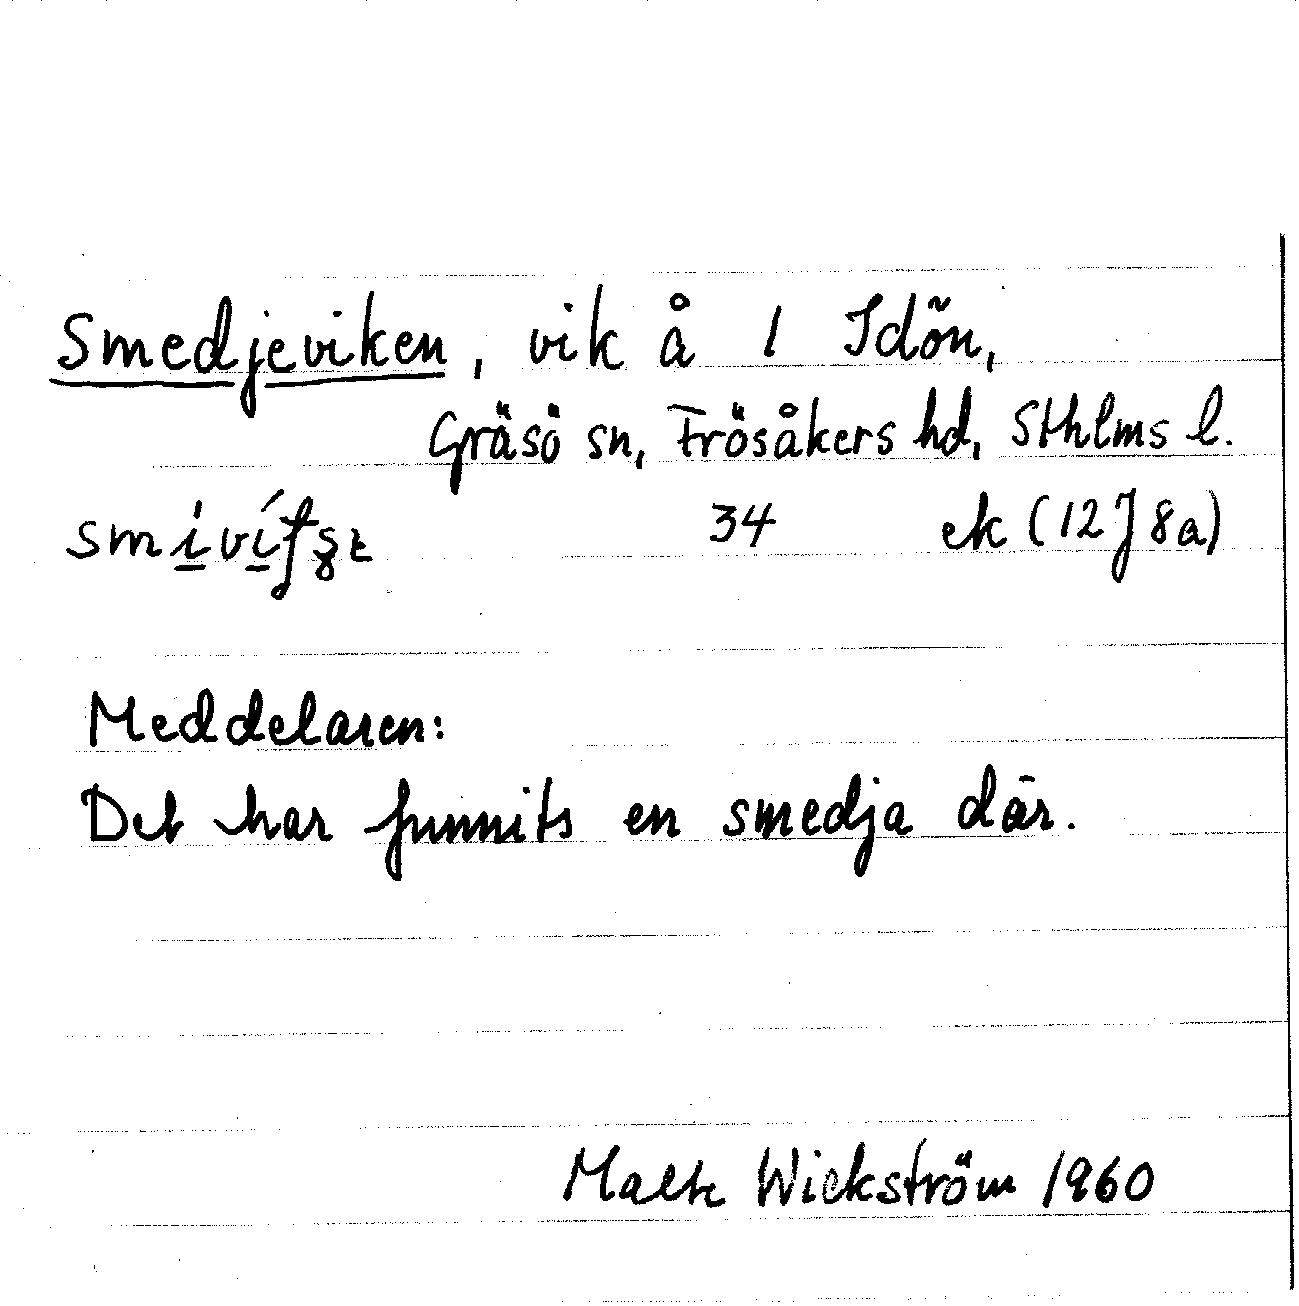 Smedjeviken, vik å 1 Idön,
Gräsö sn, Frösåkers hd, Sthlms l.
34 ek (12J8a)
Meddelaren:
Det har funnits en smedja där.
Malte Wickström 1960